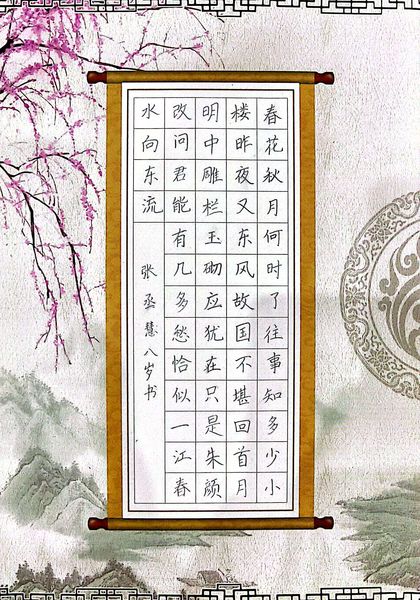 春花秋月何时了往事知多少小
楼昨夜又东风故国不堪回首月
明中雕栏玉砌应犹在只是朱颜
改问君能有几多愁恰似一江春
水向东流
张丞慧八岁书